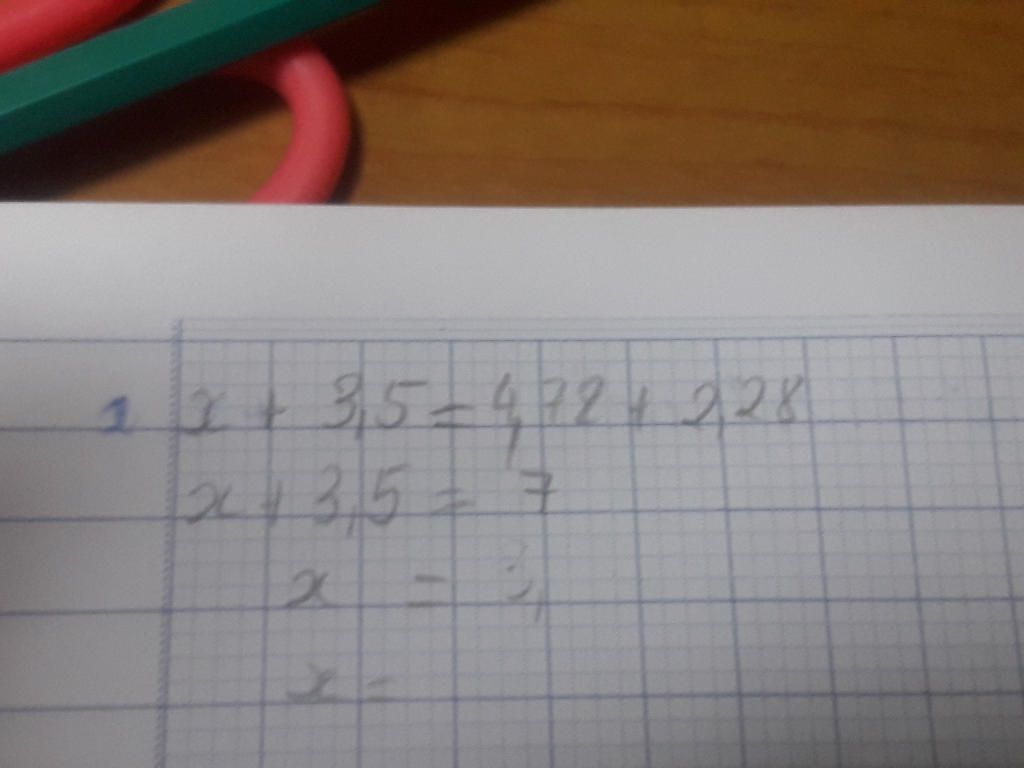 1 x + 3,5 = 4,72 + 2,28
x + 3,5 = 7
x =
x =